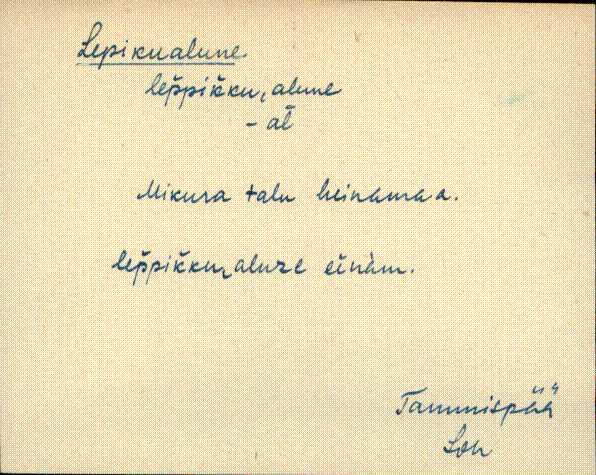 Lepikualune
lep̆pik̆ku, alune
- al̆
Mikura talu heinamaa.
lep̆pik̆ku, aluze ĕinàm.
Tammispää
Loh